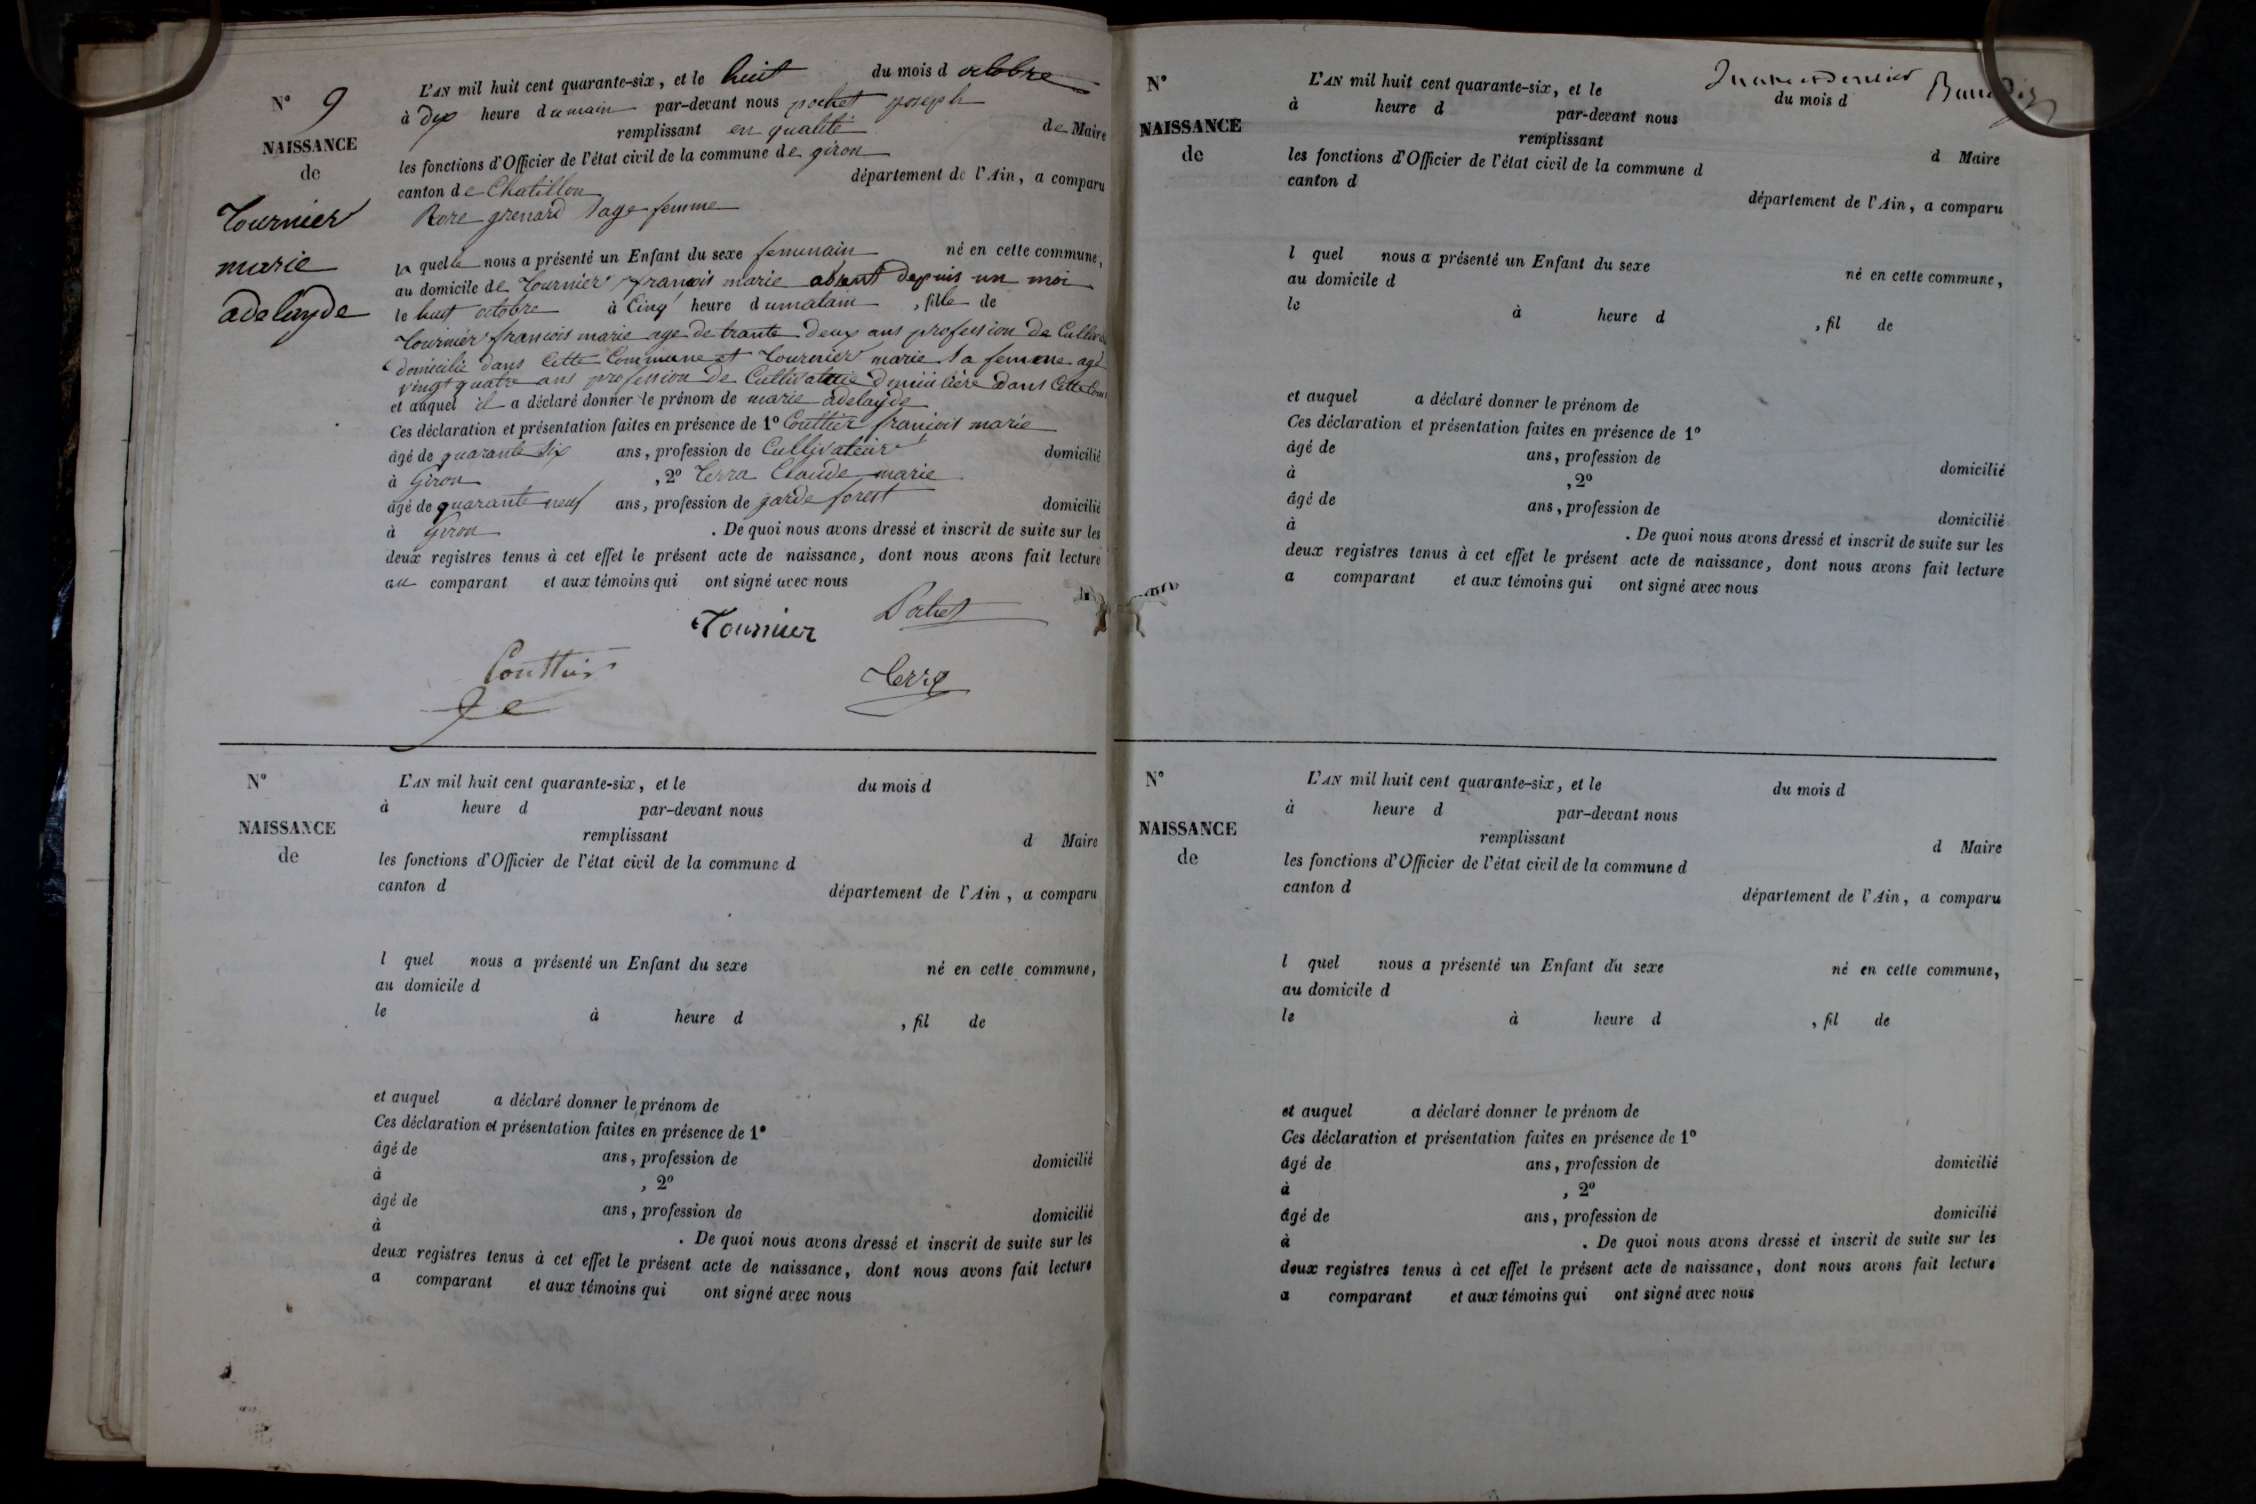 N° 9
NAISSANCE
de
Tournier
marie
adelayde
L'AN mil huit cent quarante-six, et le huit du mois d octobre
à dix heure du main par-devant nous pochet joseph
remplissant en qualité de Maire
les fonctions d'Officier de l'état civil de la commune de giron
canton de Chatillon département de l'Ain, a comparu
Rore grenard sage femme
la quelle nous a présenté un Enfant du sexe femunain né en cette commune,
au domicile de Tournier françois marie absent depuis un moi
le huit octobre à Cinq heure dumatain, fille de
Tournier francois marie age de trante deux ans profession de
domicilié dans Cette Commune et Tournier marie sa femme agé
vingt quatre ans profession de Cultivatrice domicilière dans Cette
et auquel il a déclaré donner le prénom de marie adelayde
Ces déclaration et présentation faites en présence de 1° Couttier françois marie
âgé de quarante six ans, profession de Cultivateur domicilié
à Giron, 2° Terra Claude marie
âgé de quarante neuf ans, profession de garde forest domicilié
à Giron. De quoi nous avons dressé et inscrit de suite sur les
deux registres tenus à cet effet le présent acte de naissance, dont nous avons fait lecture
au comparant et aux témoins qui ont signé avec nous
Tournier Pochet
Couttier Terra
N°
NAISSANCE
de
L'AN mil huit cent quarante-six, et le du mois d
à heure d par-devant nous
remplissant d Maire
les fonctions d'Officier de l'état civil de la commune d
canton d département de l'Ain, a comparu
l quel nous a présenté un Enfant du sexe né en cette commune,
au domicile d
le à heure d, fil de
et auquel a déclaré donner le prénom de
Ces déclaration et présentation faites en présence de 1°
âgé de ans, profession de domicilié
à, 2°
âgé de ans, profession de domicilié
à. De quoi nous avons dressé et inscrit de suite sur les
deux registres tenus à cet effet le présent acte de naissance, dont nous avons fait lecture
a comparant et aux témoins qui ont signé avec nous
N°
NAISSANCE
de
L'AN mil huit cent quarante-six, et le du mois d
à heure d par-devant nous
remplissant d Maire
les fonctions d'Officier de l'état civil de la commune d
canton d département de l'Ain, a comparu
l quel nous a présenté un Enfant du sexe né en cette commune,
au domicile d
le à heure d, fil de
et auquel a déclaré donner le prénom de
Ces déclaration et présentation faites en présence de 1°
âgé de ans, profession de domicilié
à, 2°
âgé de ans, profession de domicilié
à. De quoi nous avons dressé et inscrit de suite sur les
deux registres tenus à cet effet le présent acte de naissance, dont nous avons fait lecture
a comparant et aux témoins qui ont signé avec nous
N°
NAISSANCE
de
L'AN mil huit cent quarante-six, et le du mois d
à heure d par-devant nous
remplissant d Maire
les fonctions d'Officier de l'état civil de la commune d
canton d département de l'Ain, a comparu
l quel nous a présenté un Enfant du sexe né en cette commune,
au domicile d
le à heure d, fil de
et auquel a déclaré donner le prénom de
Ces déclaration et présentation faites en présence de 1°
âgé de ans, profession de domicilié
à, 2°
âgé de ans, profession de domicilié
à. De quoi nous avons dressé et inscrit de suite sur les
deux registres tenus à cet effet le présent acte de naissance, dont nous avons fait lecture
a comparant et aux témoins qui ont signé avec nous